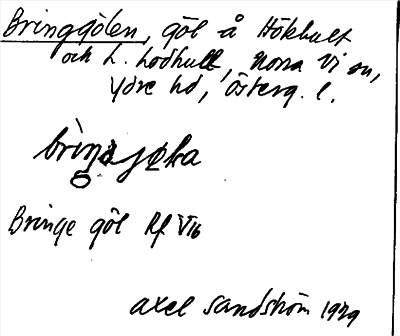 Bringgölen, göl å Hökhult
och L. Lödhult, Norra Vi sn,
Ydre hd, Österg. l.
Bringe göl Rf V16
Axel Sandström 1929